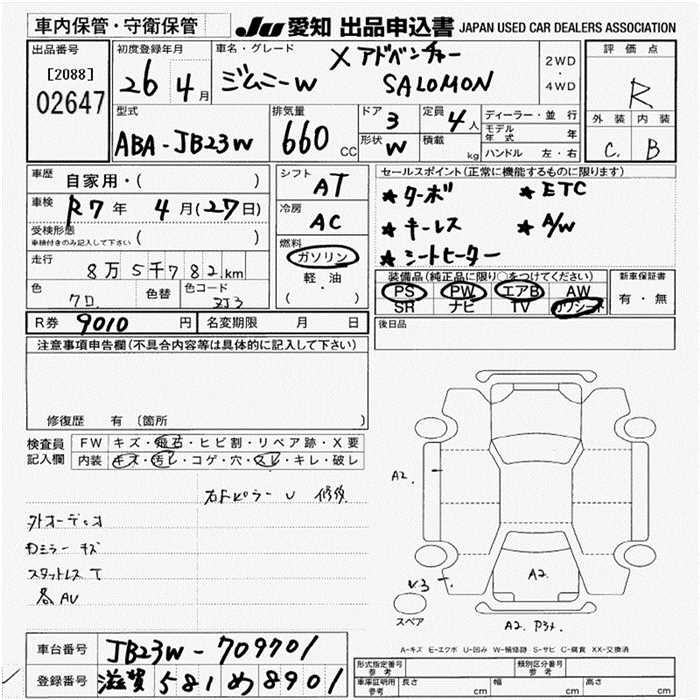 車内保管・守衛保管
JU 愛知 出品申込書 JAPAN USED CAR DEALERS ASSOCIATION
出品番号
[2088]
02647
初度登録年月
26 4月
車名・グレード
X アドベンチャー
ジムニーW SALOMON
2WD
・
4WD
評価点
R
外装 内装
C. B
型式
ABA-JB23W
排気量
660 CC
ドア 3
形状 W
定員 4人
積載 kg
ディーラー・並行
モデル年式 年
ハンドル 左・右
車歴 自家用・( )
車検 R7年 4月(27日)
受検形態
車検付きのみ記入して下さい ( )
走行 8万5千782km
色 クロ 色替 色コード ZJ3
シフト AT
冷房 AC
燃料
ガソリン
軽・油
( ・ )
セールスポイント(正常に機能するものに限ります)
★ターボ ★ETC
★キーレス ★A/W
★シートヒーター
装備品(純正品に限り○をつけてください)
PS PW エアB AW
SR ナビ TV カワシート
新車保証書
有・無
R券 9010円 名変期限 月 日
後日品
注意事項申告欄(不具合内容等は具体的に記入して下さい)
修復歴 有〔箇所 〕
検査員記入欄
FW キズ・飛石・ヒビ割・リペア跡・X要
内装 キズ・汚レ・コゲ・穴・スレ・キレ・破レ
右Fピラー U 修後
外オーディオ
ミラー キズ
スタットレス T
各AU
A2.
A2.
V3
スペア
A2. P3
A-キズ E-エクボ U-凹み W-補修跡 S-サビ C-腐食 XX-交換済
車台番号 JB23W-709701
登録番号 滋賀 581 め 8901
形式指定番号 参考
類別区分番号 参考
車庫証明用 参考 長さ cm 幅 cm 高さ cm